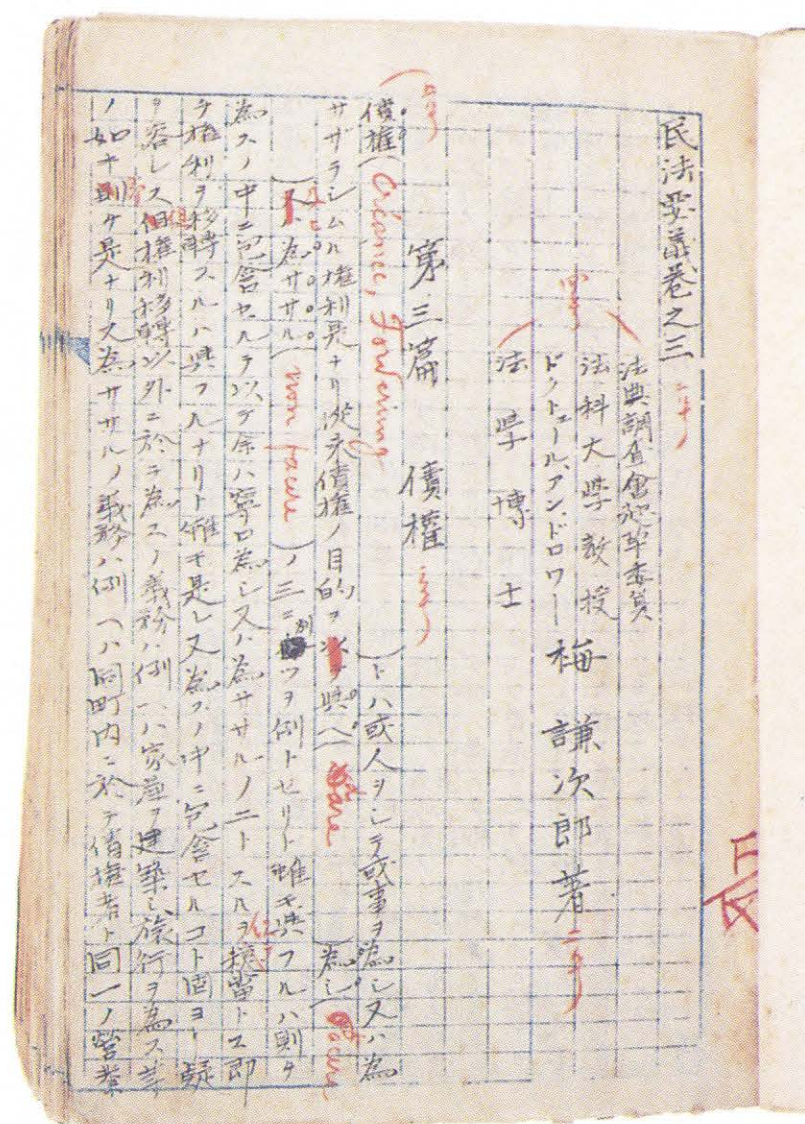 民法要義卷之三
法典調査會起草委員
法科大学教授
ドクトェール、アン、ドロワー 梅謙次郎著
法学博士
第三篇 債權
債権(Créance, Forderung)トハ或人ヲシテ或事ヲ為シ又ハ為
サザラシムル権利是ナリ従来債権ノ目的ヲ 與へ(dare) 為シ(facere)
為ササル(non facere)ノ三ニ別ツヲ例トセリト雖モ與フルハ則チ
為スノ中ニ包含セルヲ以テ余ハ寧ロ為シ又ハ為ササルノニトスルヲ穏當トス即
チ権利ヲ移轉スルハ與フルナリト雖モ是レ又為スノ中ニ包含セルコト固ヨリ疑
ヲ容レス但権利移轉以外ニ於テ為スノ義務ハ例ヘハ家屋ヲ建築シ旅行ヲ為ス等
ノ如キ則チ是ナリ又為ササルノ義務ハ例ヘハ同町内ニ於テ債権者ト同一ノ營業